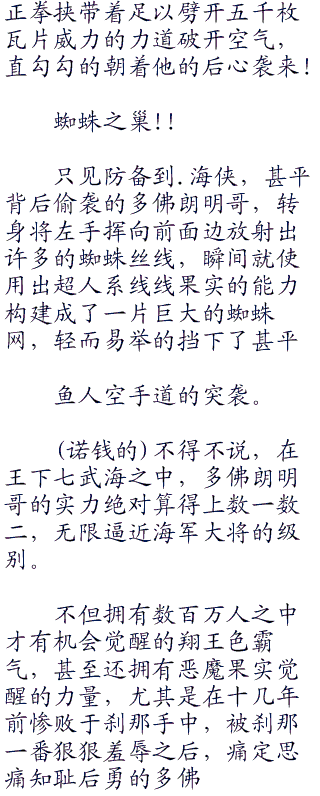 正拳挟带着足以劈开五千枚
瓦片威力的力道破开空气，
直勾勾的朝着他的后心袭来！
蜘蛛之巢！！
只见防备到.海侠，甚平
背后偷袭的多佛朗明哥，转
身将左手挥向前面边放射出
许多的蜘蛛丝线，瞬间就使
用出超人系线线果实的能力
构建成了一片巨大的蜘蛛
网，轻而易举的挡下了甚平
鱼人空手道的突袭。
(诺钱的)不得不说，在
王下七武海之中，多佛朗明
哥的实力绝对算得上数一数
二，无限逼近海军大将的级
别。
不但拥有数百万人之中
才有机会觉醒的翔王色霸
气，甚至还拥有恶魔果实觉
醒的力量，尤其是在十几年
前惨败于刹那手中，被刹那
一番狠狠羞辱之后，痛定思
痛知耻后勇的多佛